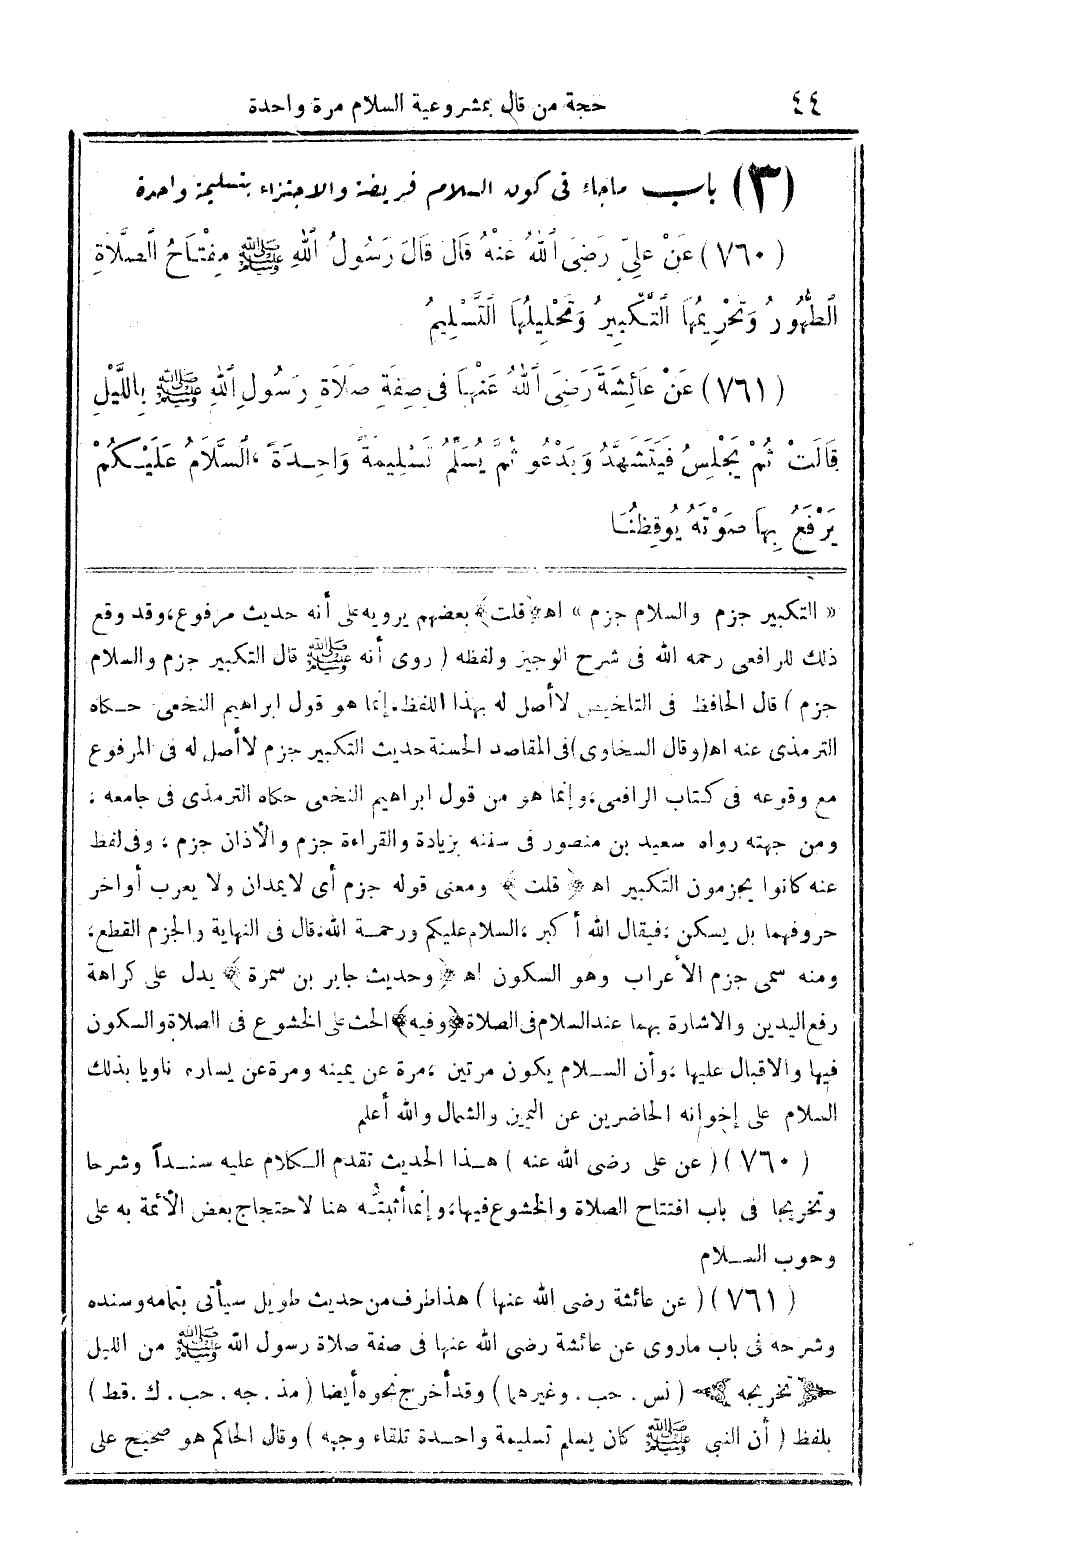 ٤٤ حجة من قال بمشروعية السلام مرة واحدة
(٣) باب ماجاء فى كون السلام فريضة والاجتزاء بتسليمة واحدة
(٧٦٠) عَنْ عَلِىٍّ رَضِىَ ٱللهُ عَنْهُ قَالَ قَالَ رَسُولُ ٱللهِ ﷺ مِفْتَاحُ ٱلصَّلَاةِ
ٱلطُّهُورُ وَتَحْرِيمُهَا ٱلتَّكْبِيرُ وَتَحْلِيلُهَا ٱلتَّسْلِيمُ
(٧٦١) عَنْ عَائِشَةَ رَضِىَ ٱللهُ عَنْهَا فِى صِفَةِ صَلَاةِ رَسُولِ ٱللهِ ﷺ بِاللَّيْلِ
قَالَتْ ثُمَّ يَجْلِسُ فَيَتَشَهَّدُ وَيَدْعُو ثُمَّ يُسَلِّمُ تَسْلِيمَةً وَاحِدَةً ، ٱلسَّلَامُ عَلَيْكُمْ
يَرْفَعُ بِهَا صَوْتَهُ يُوقِظُنَا
« التكبير جزم والسلام جزم » اهـ ﴿قلت﴾ بعضهم يرويه على أنه حديث مرفوع، وقد وقع
ذلك للرافعى رحمه الله فى شرح الوجيز ولفظه ( روى أنه ﷺ قال التكبير جزم والسلام
جزم ) قال الحافظ فى التلخيص لا أصل له بهذا اللفظ. إنما هو قول ابراهيم النخعى حكاه
الترمذى عنه اهـ (وقال السخاوى) فى المقاصد الحسنة حديث التكبير جزم لا أصل له فى المرفوع
مع وقوعه فى كتاب الرافعى، وإنما هو من قول ابراهيم النخعى حكاه الترمذى فى جامعه ،
ومن جهته رواه سعيد بن منصور فى سننه بزيادة والقراءة جزم والأذان جزم ، وفى لفظ
عنه كانوا يجزمون التكبير اهـ ﴿ قلت ﴾ ومعنى قوله جزم أى لايمدان ولا يعرب أواخر
حروفهما بل يسكن ، فيقال الله أكبر ، السلام عليكم ورحمة الله، قال فى النهاية والجزم القطع،
ومنه سمى جزم الأعراب وهو السكون اهـ ﴿وحديث جابر بن سمرة﴾ يدل على كراهة
رفع اليدين والاشارة بهما عند السلام فى الصلاة ﴿وفيه﴾ الحث على الخشوع فى الصلاة والسكون
فيها والاقبال عليها ، وأن السلام يكون مرتين ، مرة عن يمينه ومرة عن يساره ناويا بذلك
السلام على إخوانه الحاضرين عن اليمين والشمال والله أعلم
(٧٦٠) ( عن على رضى الله عنه ) هذا الحديث تقدم الكلام عليه سنداً وشرحا
وتخريجا فى باب افتتاح الصلاة والخشوع فيها، وإنما أثبتُّه هنا لاحتجاج بعض الأئمة به على
وجوب السلام
(٧٦١) ( عن عائشة رضى الله عنها ) هذا طرف من حديث طويل سيأتى بتمامه وسنده
وشرحه فى باب ماروى عن عائشة رضى الله عنها فى صفة صلاة رسول الله ﷺ من الليل
﴿ تخريجه ﴾ (نس . حب . وغيرهما ) وقد أخرج نحوه أيضا ( مذ . جه . حب . ك . قط )
بلفظ ( أن النبى ﷺ كان يسلم تسليمة واحدة تلقاء وجهه ) وقال الحاكم هو صحيح على